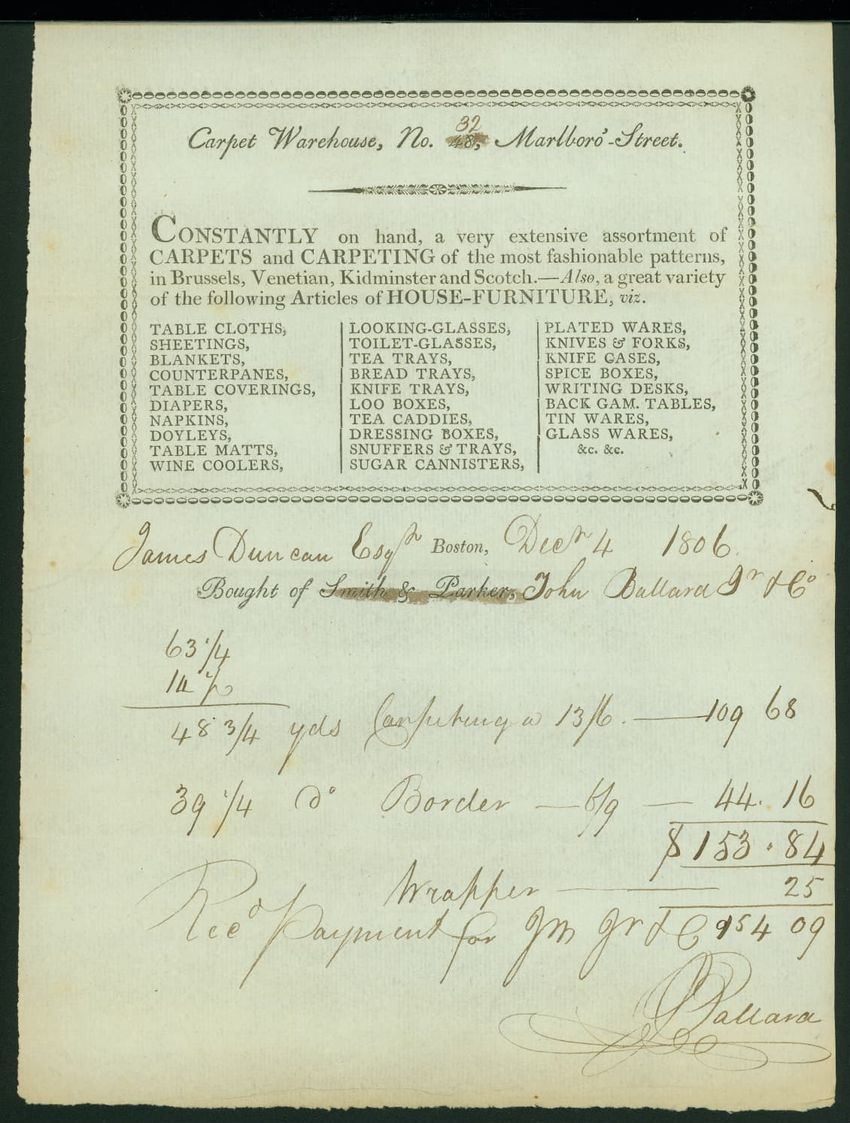 32
Carpet Warehouse, No. 48, Marlboro'-Street.
CONSTANTLY on hand, a very extensive assortment of
CARPETS and CARPETING of the most fashionable patterns,
in Brussels, Venetian, Kidminster and Scotch.—Also, a great variety
of the following Articles of HOUSE-FURNITURE, viz.
TABLE CLOTHS,
SHEETINGS,
BLANKETS,
COUNTERPANES,
TABLE COVERINGS,
DIAPERS,
NAPKINS,
DOYLEYS,
TABLE MATTS,
WINE COOLERS,
LOOKING-GLASSES,
TOILET-GLASSES,
TEA TRAYS,
BREAD TRAYS,
KNIFE TRAYS,
LOO BOXES,
TEA CADDIES,
DRESSING BOXES,
SNUFFERS & TRAYS,
SUGAR CANNISTERS,
PLATED WARES,
KNIVES & FORKS,
KNIFE CASES,
SPICE BOXES,
WRITING DESKS,
BACK GAM. TABLES,
TIN WARES,
GLASS WARES,
&c. &c.
James Duncan Esqr Boston, Decr 4 1806.
Bought of Smith & Parker, John Ballard Jr & Co
63 1/4
14 1/2
48 3/4 yds Carpeting a 13/6. — 109 68
39 1/4 do Border — 6/9 — 44. 16
$153.84
Wrapper — 25
Recd Payment for Jn Jr & C 154 09
J Ballard